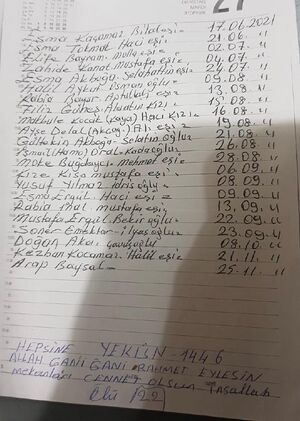 27
Esma Kaçamaz Biladesi 17.06.2021
Esma Tokmat Haci eşi 21.06. "
Elife Bayram. molla eşi 02.07. "
Zahide Kanat mustafa eşi 04.07. "
Esma Akboğa. Selahattin eşi 22.07 "
Halil Aykut osman oğlu 09.08 "
Rabia Bayar 13.08 "
Filiz Güneş Kızı 15.08 "
Makbule Kocat (Kaya) Haci Kızı 16.08 "
Ayşe Delal (Akçay) Ali eşi
Gültekin Akboğa Selahattin oğlu 21.08 "
İsmail Hami Önal. Kadir oğlu 26.08 "
Moke Buğdaycı mehmet eşi 28.08 "
Kıza mustafa eşi 06.09 "
Yusuf Yılmaz idris oğlu 08.09 "
Esma Ergül. Haci eşi 09.09 "
Rabia mustafa eşi 13.09 "
Mustafa Ergül Bekir oğlu 22.09 "
Soner ilyas oğlu 23.09 "
Doğan Akar 08.10 "
Kezban Kocamaz Halil eşi 21.11 "
Arap Baysal 25.11 "
HEPSİNE YEKÜN - 1446
ALLAH GANİ GANİ RAHMET EYLESİN
mekanları CENNET OLSUN İnşallah
Ölü 22